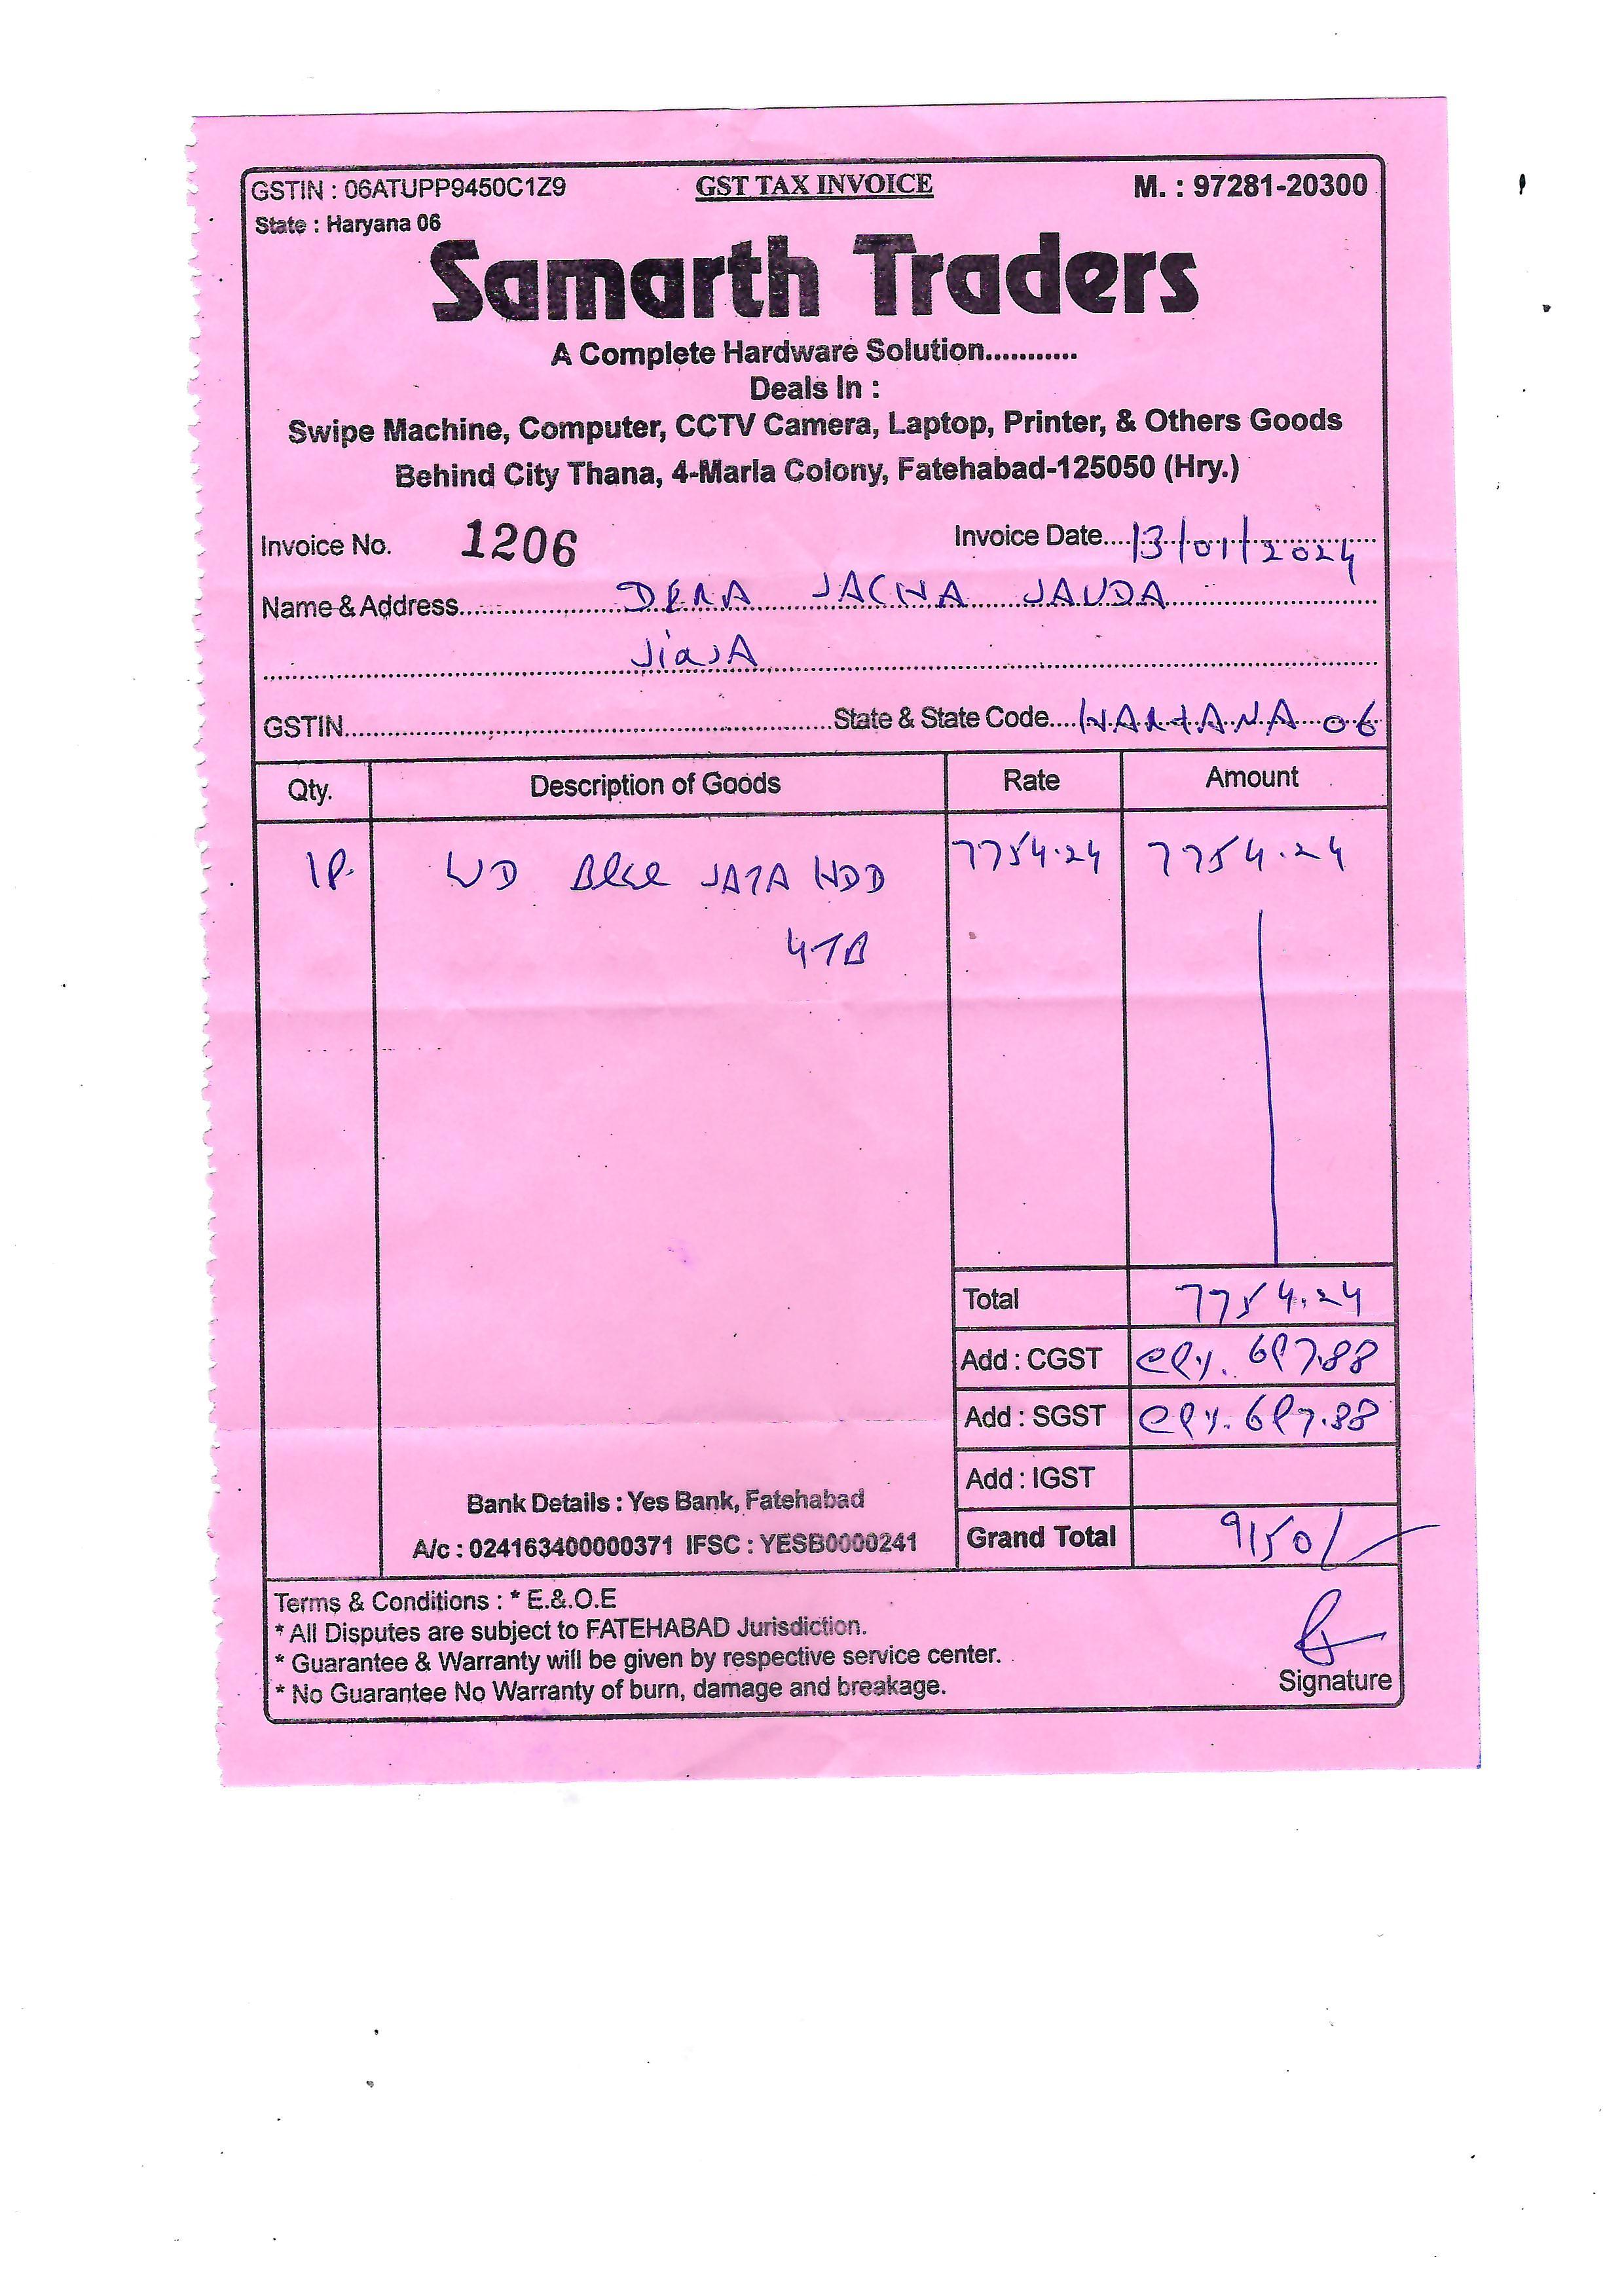 GSTIN : 06ATUPP9450C1Z9 GST TAX INVOICE M. : 97281-20300
State : Haryana 06
Samarth Traders
A Complete Hardware Solution............
Deals In :
Swipe Machine, Computer, CCTV Camera, Laptop, Printer, & Others Goods
Behind City Thana, 4-Marla Colony, Fatehabad-125050 (Hry.)
Invoice No. 1206 Invoice Date....13/01/2024
Name & Address....... DERA SACHA SAUDA
SirsA
GSTIN State & State Code.... HARYANA 06
Qty. Description of Goods Rate Amount
1P. WD Blue SATA HDD 7754.24 7754.24
4TB
Total 7754.24
Add : CGST @9%. 697.88
Add : SGST @9%. 697.88
Add : IGST
Bank Details : Yes Bank, Fatehabad
A/c : 024163400000371 IFSC : YESB0000241 Grand Total 9150/-
Terms & Conditions : * E.&.O.E
* All Disputes are subject to FATEHABAD Jurisdiction.
* Guarantee & Warranty will be given by respective service center.
* No Guarantee No Warranty of burn, damage and breakage.
Signature